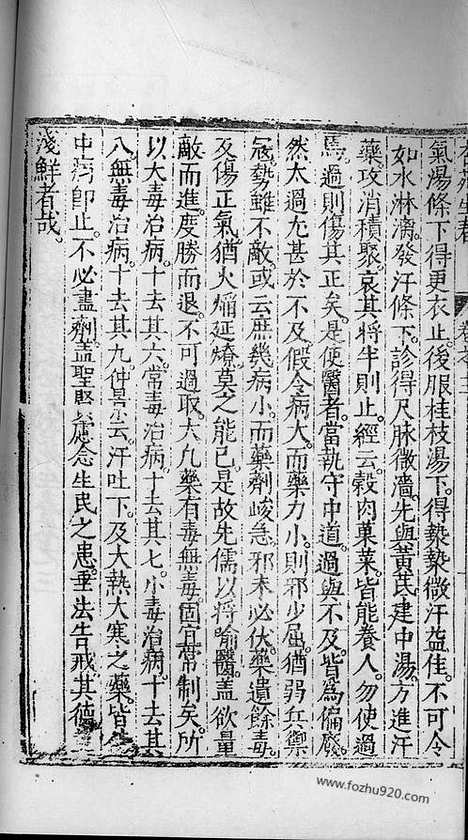 氣湯條下得更衣止後服桂枝湯下得漐漐微汗益佳不可令
如水淋漓發汗條下診得尺脉微濇先與黃芪建中湯方進汗
藥攻消積聚哀其將半則止經云穀肉菓菜皆能養人勿使過
焉過則傷其正矣是使醫者當執守中道過與不及皆爲偏廢
然太過尤甚於不及假令病大而藥力小則邪少屈猶弱兵禦
冦勢雖不敵或云庶幾病小而藥劑峻急邪未必伏藥遺餘毒
反傷正氣猶火焰延燎莫之能已是故先儒以將喻醫盖欲量
敵而進度勝而退不可過取大凡藥有毒無毒固宜常制矣所
以大毒治病十去其六常毒治病十去其七小毒治病十去其
八無毒治病十去其九仲景云汗吐下及大熱大寒之藥皆
中病卽止不必盡劑盖聖賢念生民之患垂法告戒其德
淺鮮者哉
www.fozhu920.com